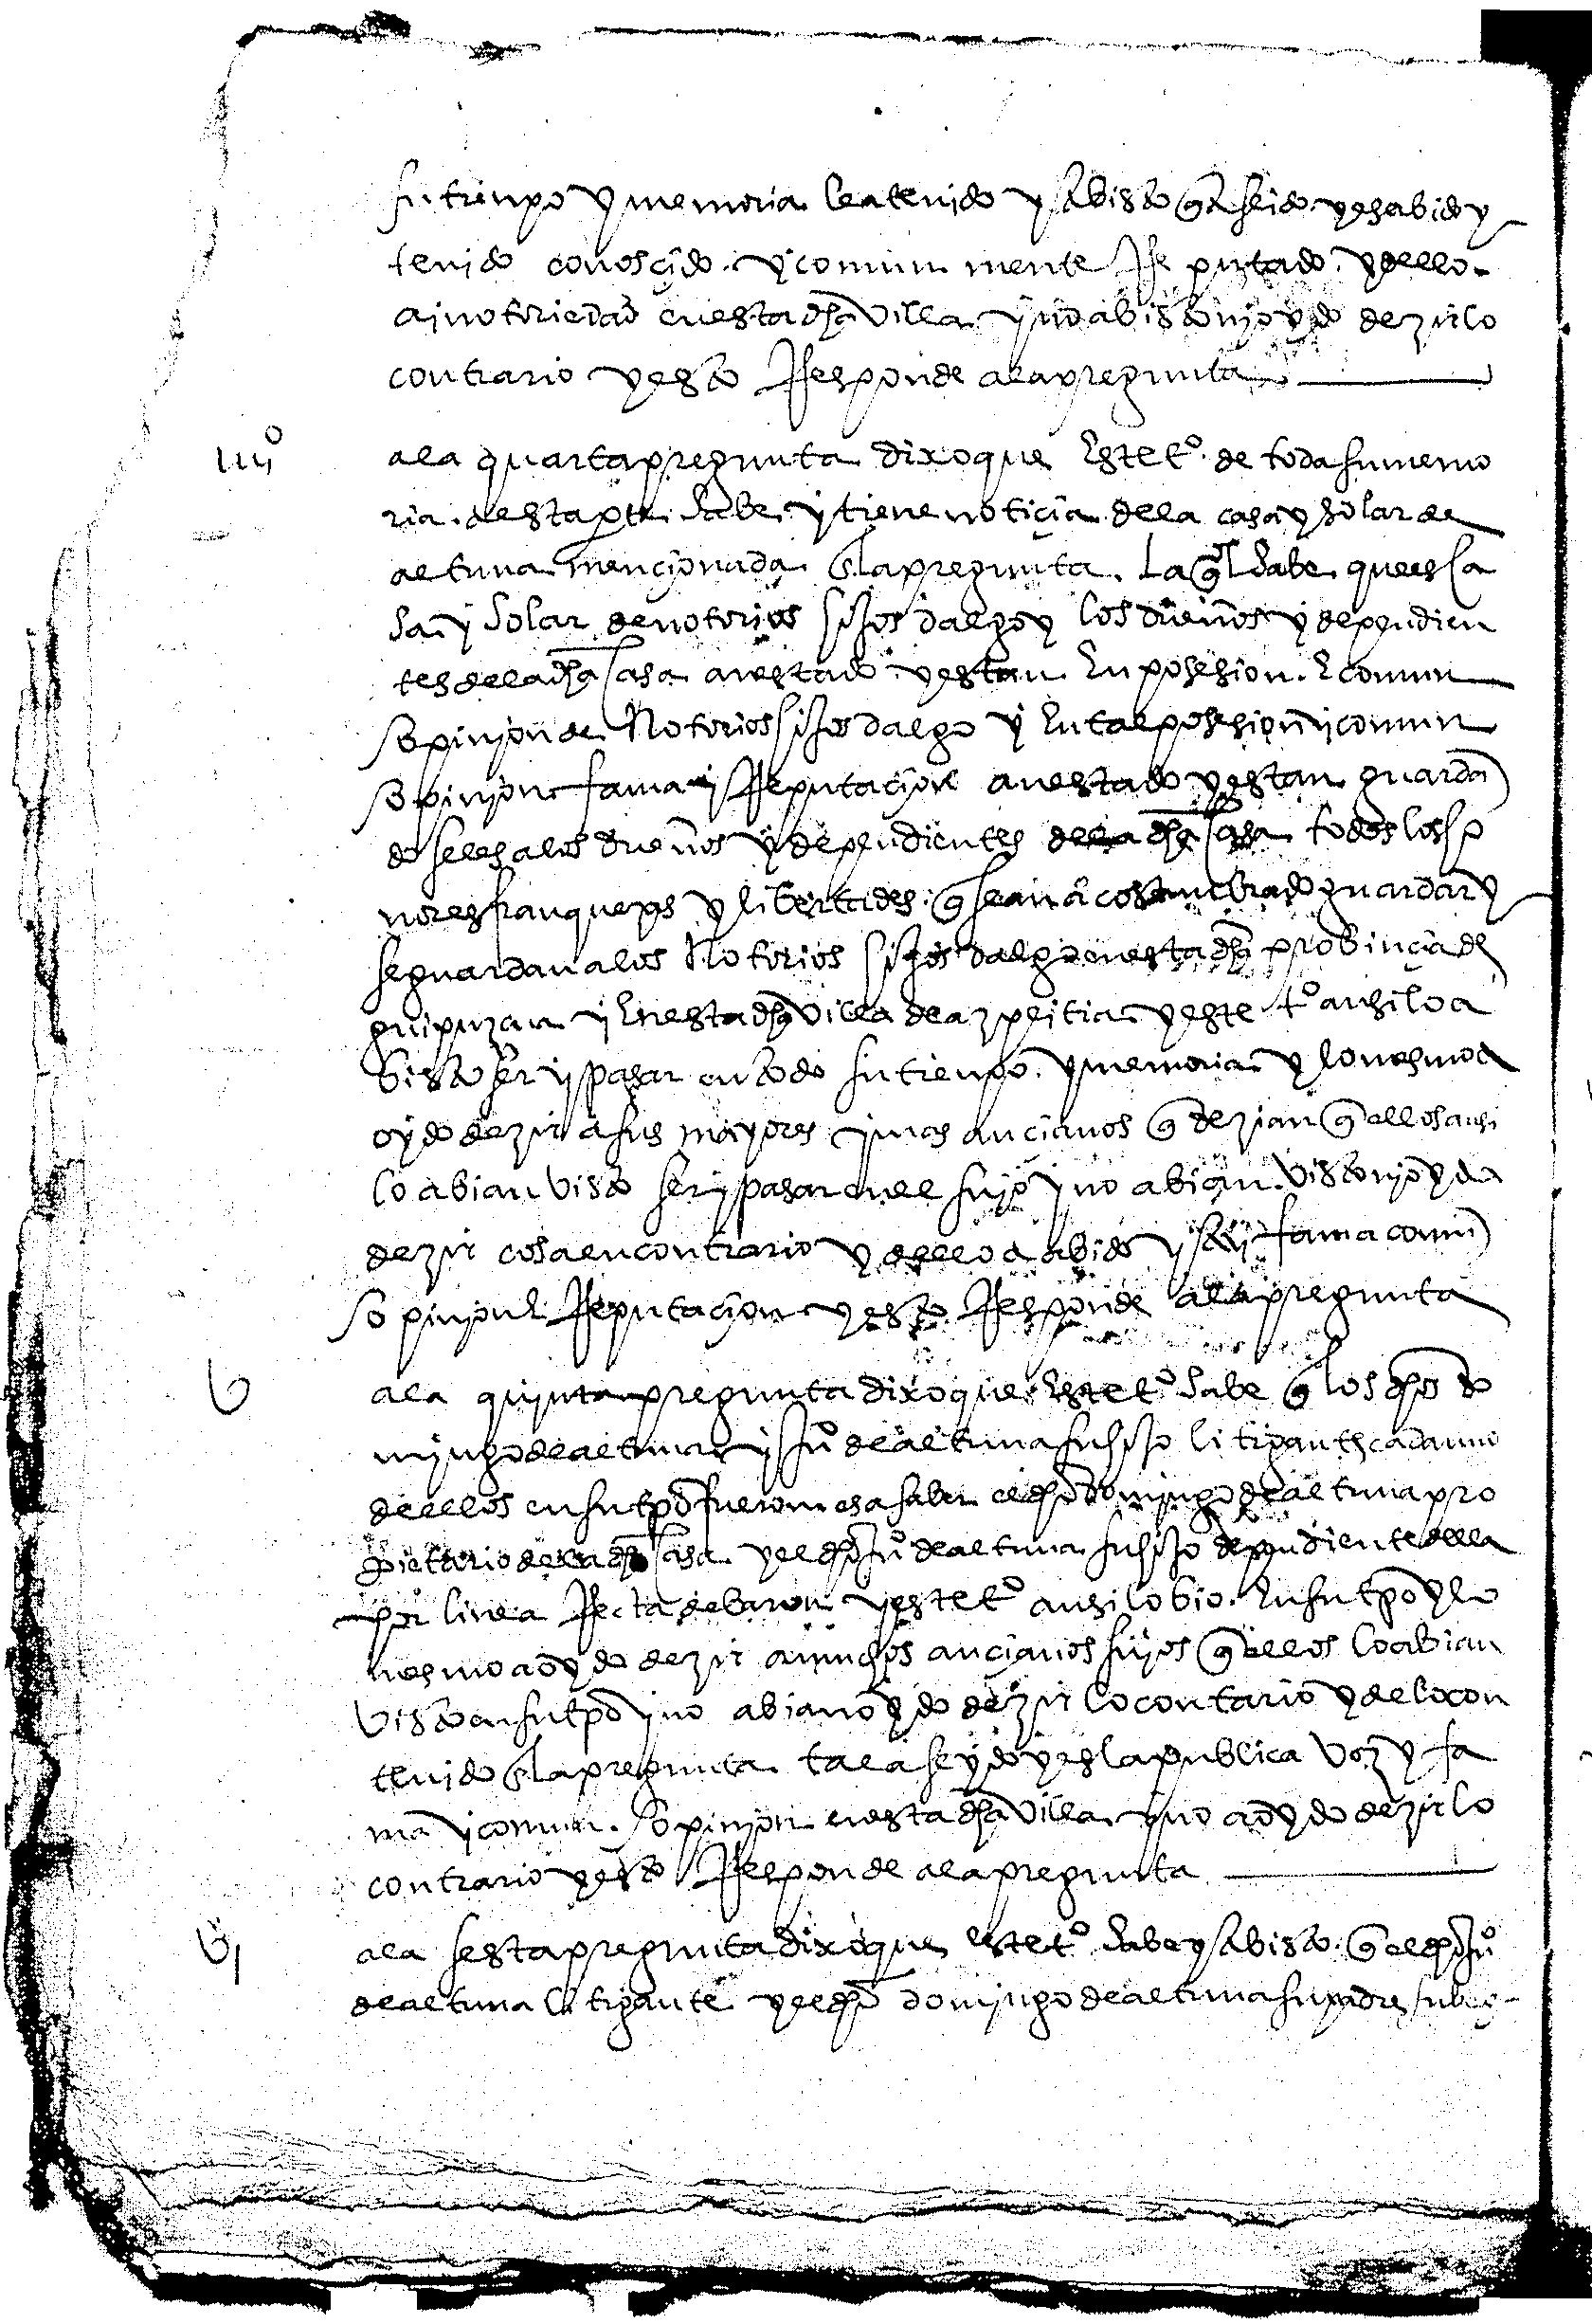 su tienpo y memoria le a tenido y a bisto q̃ a seido y es abido y
tenido conosçido y comun mente rreputado y dello
ay notoriedad en esta dha villa y no a bisto ni oydo dezir lo
contrario y esto rresponde a la pregunta
iiijº
a la quarta pregunta dixo que este tº de toda su memo
ria a esta pte sabe y tiene notiçia de la casa y solar de
altuna mençionada en la pregunta la ql sabe que es ca
sa y solar de notorios hijos dalgo y los dueños y dependien
tes de la dha casa an estado y estan en posesion e comun
opinion de notorios hijos dalgo y en tal posesion y comun
opinion fama y rreputaçion an estado y estan guardan
doseles a los dueños y dependientes de la dha casa todos los ho
nores franquezas y libertades q̃ se an acostunbrado guardar y
se guardan a los notorios hijos dalgo en esta dha probinçia de
guipuzcoa y en esta dha villa de azpeitia y este tº ansi lo a
bisto ser y pasar en todo su tienpo y memoria y lo mesmo a
oydo dezir a sus mayores y mas ançianos q̃ dezian q̃ ellos ansi
lo abian visto ser y pasar en el suyo y no abian visto ni oydo
dezir cosa en contrario y dello a abido y ay fama comun
opinion e rreputaçion y esto rresponde a la pregunta
v
a la quinta pregunta dixo que este tº sabe q̃ los dhos do
mingo de altuna y juº de altuna su hijo litigante cada uno
de ellos en su tpo fueron es a saber el dho domingo de altuna pro
pietario de la dha casa y el dho juº de altuna su hijo dependiente della
por linea rrecta de baron y este tº ansi lo bio en su tpo y lo
mesmo a oydo dezir a muchos ançianos suyos q̃ ellos lo abian
visto en su tpo y no abian oydo dezir lo contario y de lo con
tenido en la pregunta tal a seydo y es la publica voz y fa
ma y comun opinion en esta dha villa y no a oydo dezir lo
contrario y esto rresponde a la pregunta
vi
a la sesta pregunta dixo que este tº sabe y a bisto q̃ el dho juº
de altuna litigante y el dho domingo de altuna su padre